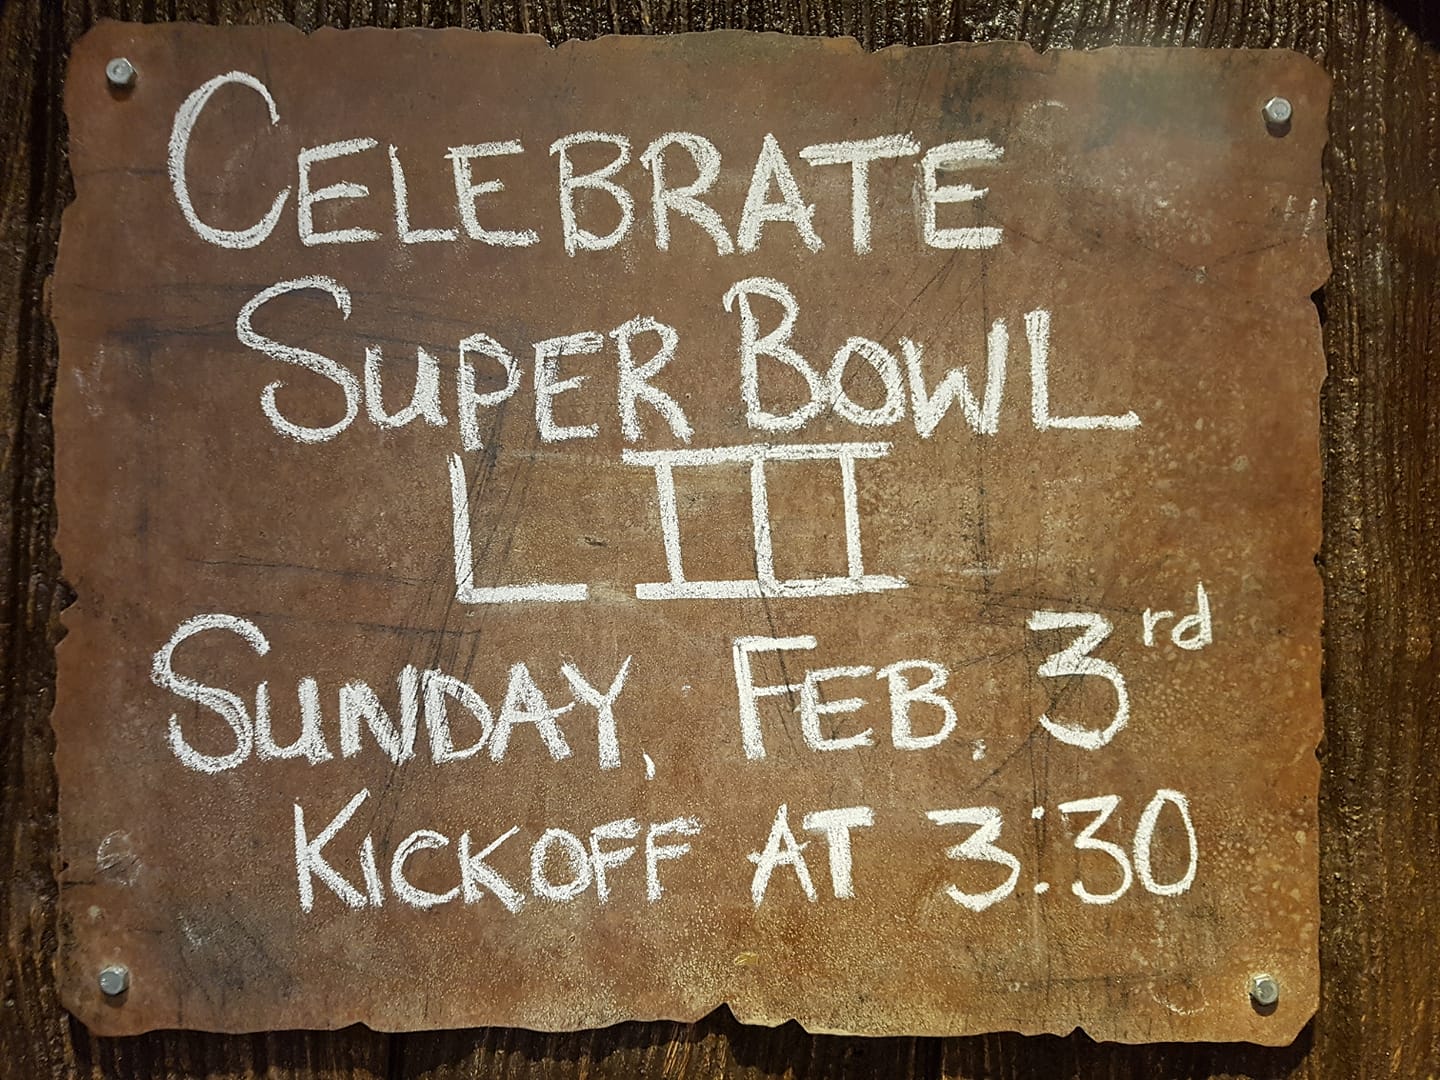 CELEBRATE
SUPER BOWL
LIII
SUNDAY, FEB. 3rd
KICKOFF AT 3:30